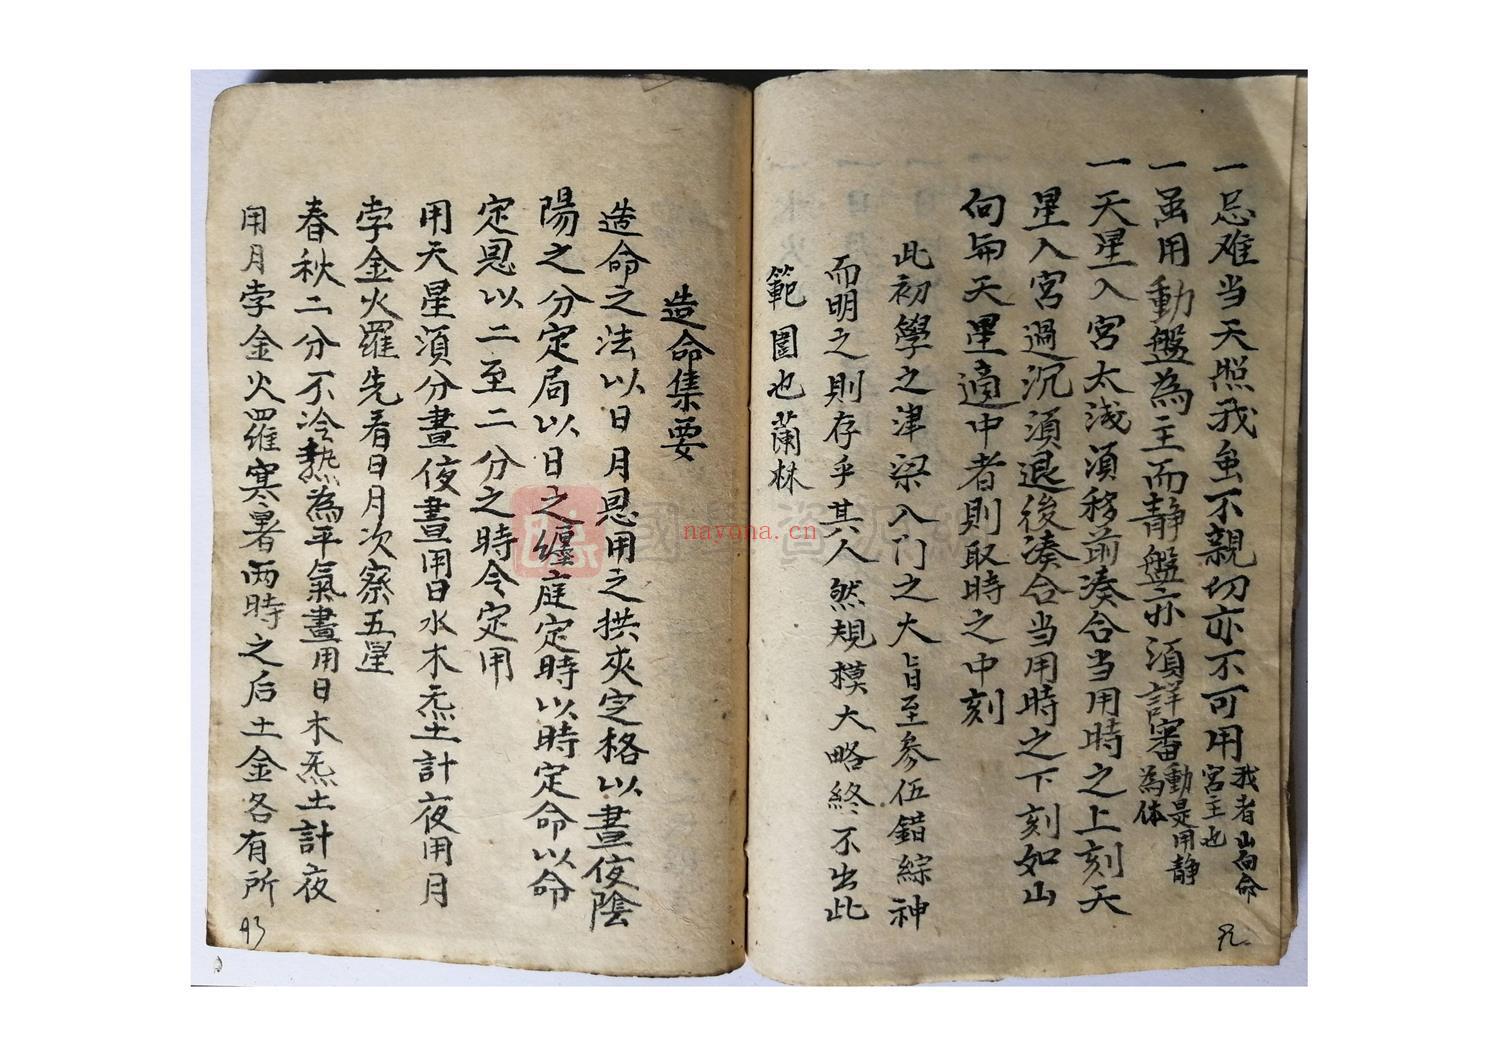 一忌难当天照我虽不親切亦不可用我者山向命宮主也
一虽用動盤為主而静盤亦須詳審動是用静為体
一天星入宮太浅須移前湊合当用時之上刻天
星入宮過沉須退後湊合当用時之下刻如山
向与天星適中者則取時之中刻
此初學之津梁入门之大旨至参伍錯綜神
而明之則存乎其人然規模大略終不出此
範圍也蘭林
九
造命集要
造命之法以日月恩用之拱夾定格以晝夜陰
陽之分定局以日之纏度定時以時定命以命
定恩以二至二分之時令定用
用天星須分晝夜晝用日水木炁土計夜用月
孛金火羅先看日月次察五星
春秋二分不冷熱為平氣晝用日木炁土計夜
用月孛金火羅寒暑两時之后土金各有所
国学资源网
nayona.cn